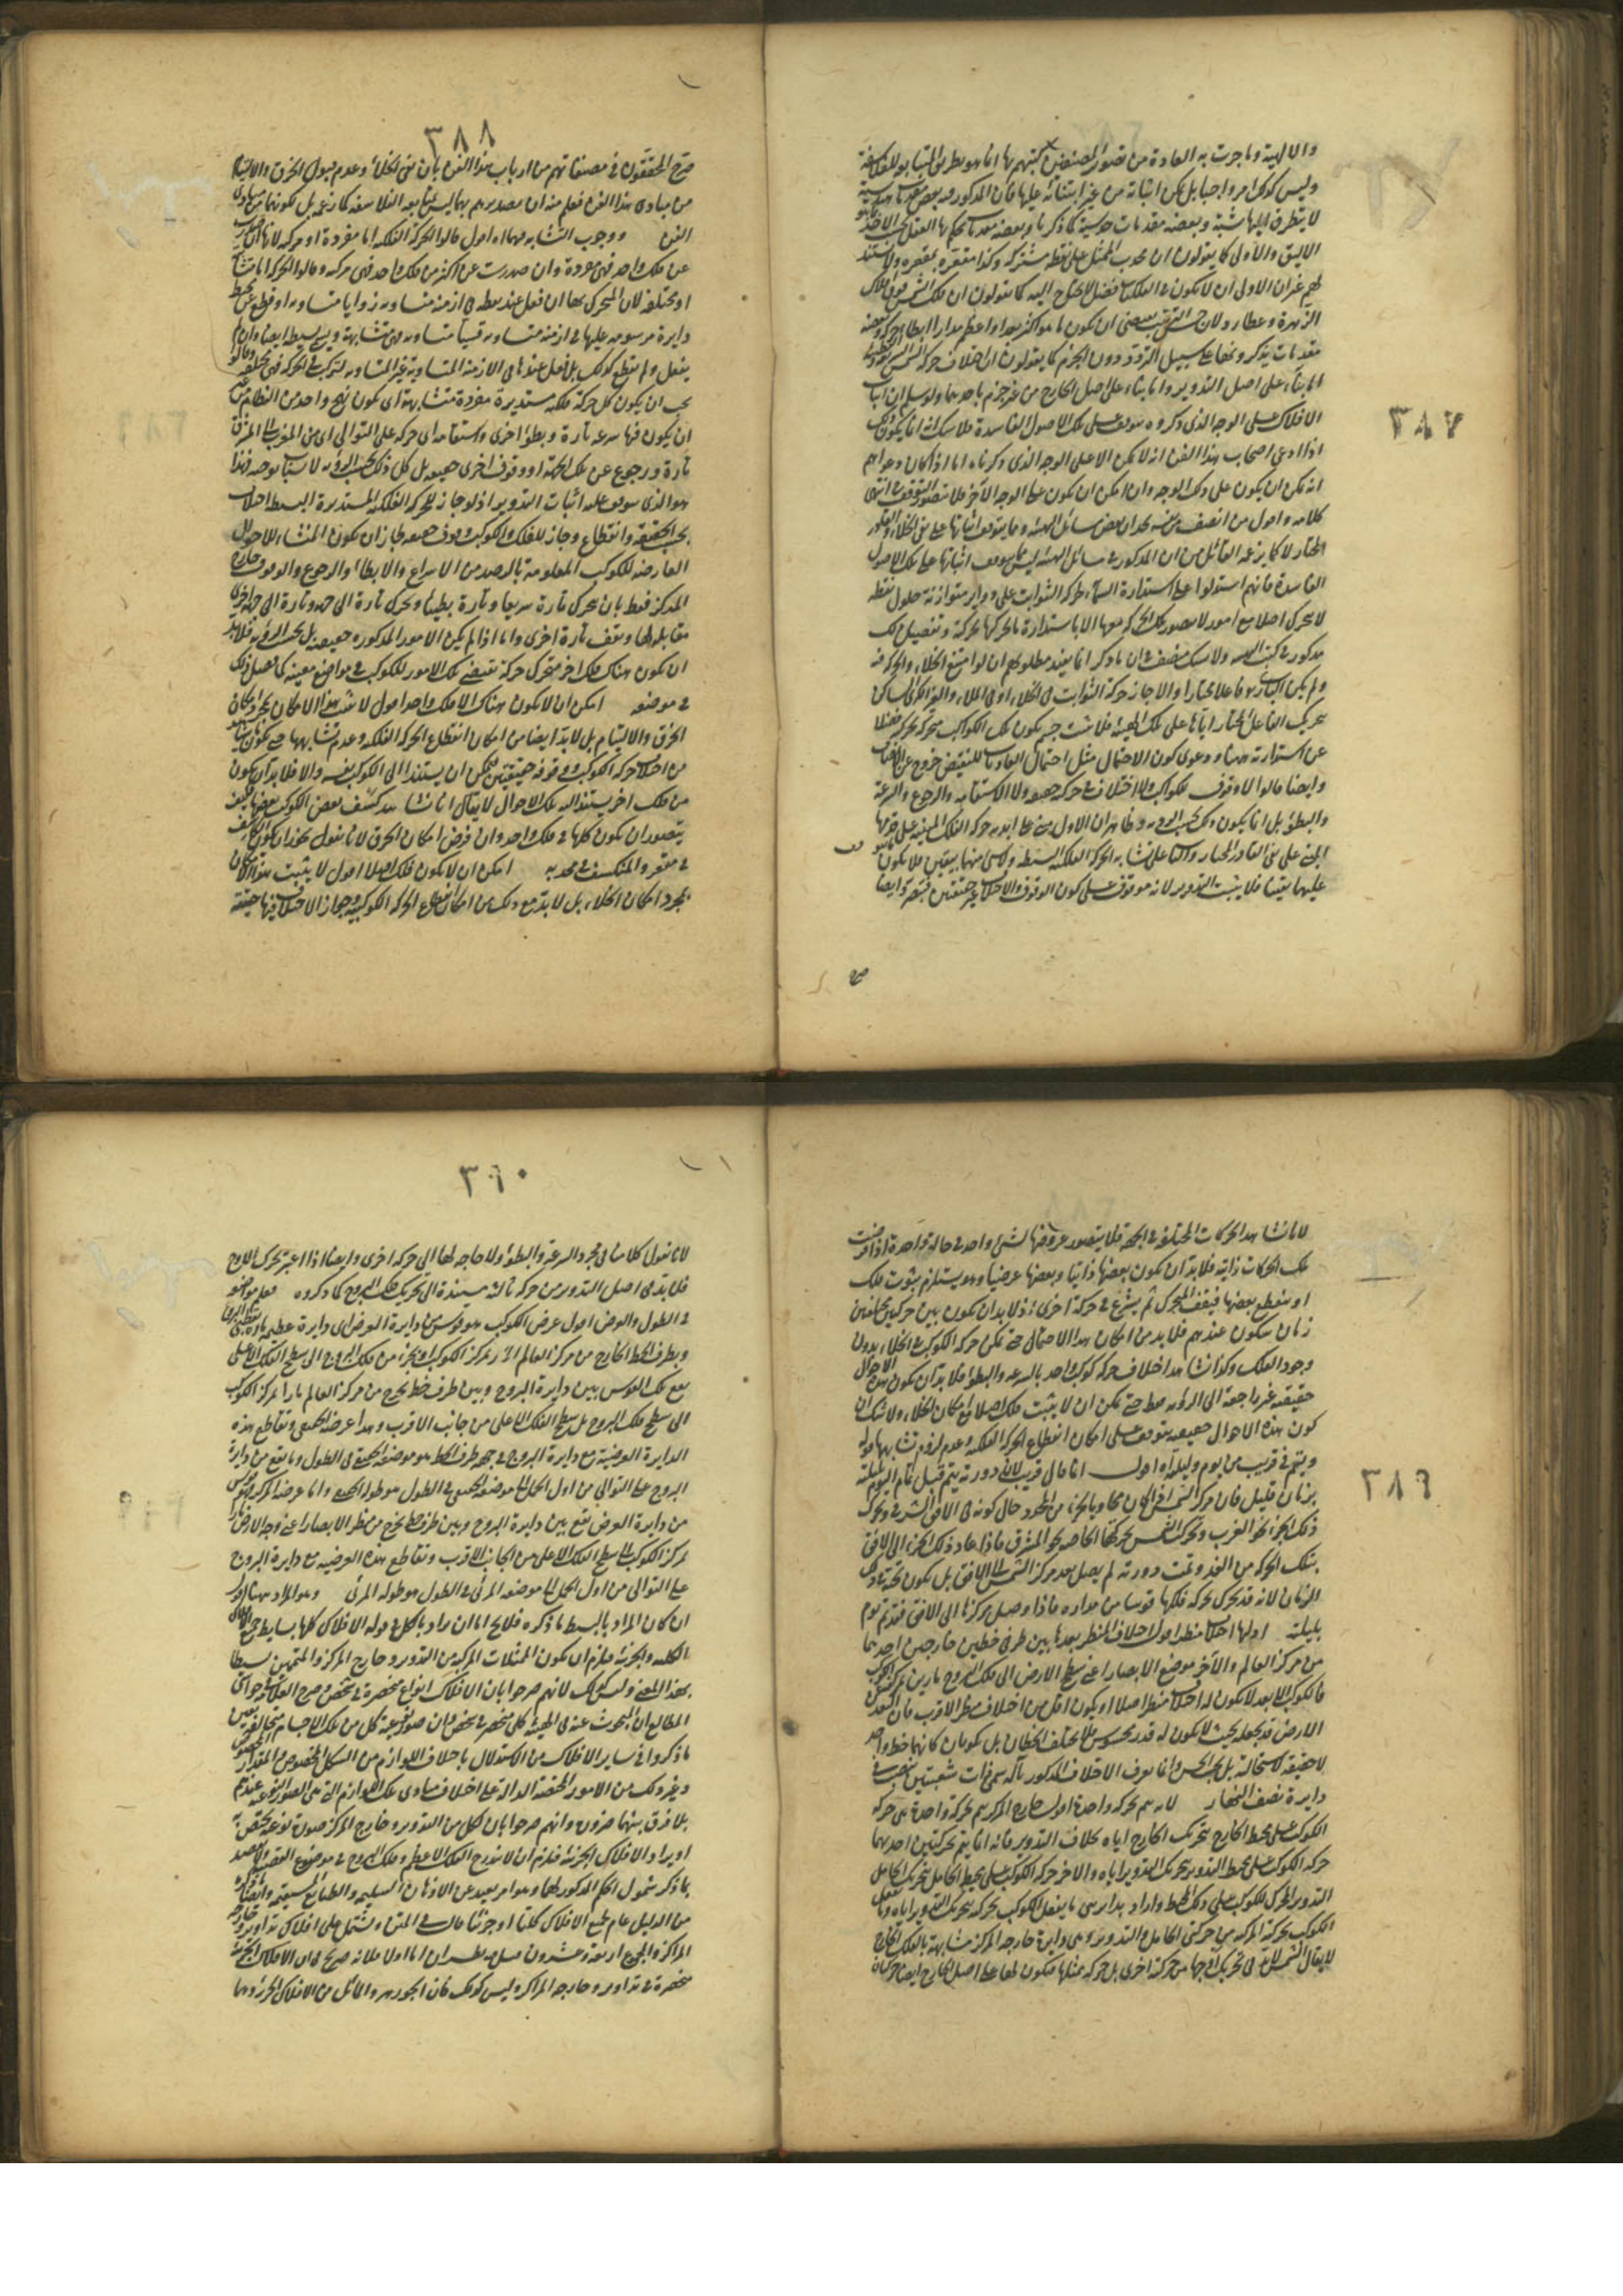 ٣٨٧
والالهية وما جرت به العادة من تصدير المصنفين كتبهم بها انما هو بطريق المتابعة للفلاسفة
وليس كذلك امرا واجبا بل يمكن اثباته من غير ابتنائه عليها فان المذكور فيه بعضه مقدمات هندسية
لا يتطرق اليها شبهة وبعضه مقدمات حدسية كما ذكرنا وبعضه مقدمات يحكم بها العقل بحسب الاخذ
الاليق والاولى كما يقولون ان محدب الممثل على نقطة مشتركة وكذا مقعره بمقعره ولا مستند
لهم غير ان الاولى ان لا يكون في الفلكيات فضل لا يحتاج اليه كما يقولون ان فلك الشمس فوق فلك
الزهرة وعطارد لان حسن الترتيب يقتضى ان يكون ما هو اكثر بعدا واعظم مدارا ابطأ حركة وبعضه
مقدمات يذكرونها على سبيل التردد دون الجزم كما يقولون ان اختلاف حركة الشمس
اما بناء على اصل التدوير واما بناء على اصل الخارج من غير جزم باحدهما ولو سلم ان اثبات
الافلاك على الوجه الذى ذكروه يتوقف على تلك الاصول الفاسدة فلا شك انه انما يكون كذلك
اذا ادعى اصحاب هذا الفن انه لا يمكن الا على الوجه الذى ذكرناه اما اذا كان دعواهم
انه يمكن ان يكون على ذلك الوجه وان امكن ان يكون على الوجه الآخر فلا يتصور التوقف انتهى
كلامه واقول من انصف من نفسه يجد ان بعض مسائل الهيئة وما يتوقف اثباتها على نفى الخلاء
المختار لا كما يزعم القائل من ان المذكور في مسائل الهيئة ليس مما يتوقف اثباتها على تلك الاصول
الفاسدة فانهم استدلوا على استدارة السماء بحركة الثوابت على دوائر متوازية حول نقطة
لا تتحرك اصلا مع امور لا يتصور تلك الحركة معها الا باستدارة ما يحركها بحركته وتفصيل ذلك
مذكور في كتب الهيئة ولا يشك منصف في ان ما ذكر انما يفيد مطلوبهم ان لو امتنع الخلاء والحركة فيه
ولم يكن البارئ فاعلا مختارا والا جاز حركة الثوابت في الخلاء او في الملاء
بتحريك الفاعل المختار اياها على تلك الهيئة فلا يثبت جسم يكون تلك الكواكب متحركة بحركته فضلا
عن استدارته ودعوى كون الاحتمال مثل احتمال العاديات للنقيض خروج عن الانصاف
وايضا قالوا لا وقوف للكواكب ولا اختلاف في حركته حقيقة ولا الاستقامة والرجوع والسرعة
والبطؤ بل انما يكون ذلك بحسب الرؤية وظاهر ان الاول مبنى على ابدية حركة الفلك
المبنى على نفى القادر المختار والثانى على تشابه الحركة الفلكية البسيطة وليس منهما بيقين فلا يكون
عليهما يقينا فلا يثبت التدوير لانه موقوف على كون الوقوف والاختلاف غير حقيقيين
٣٨٨
صرح المحققون في مصنفاتهم من ارباب هذا الفن بان نفى الخلاء وعدم قبول الخرق والالتيام
من مبادى هذا الفن فعلم منه ان تصديرهم بها ليس لمتابعة الفلاسفة كما زعمه بل لكونها من مبادى
الفن ووجوب التشابه فيها اه اقول قالوا الحركة الفلكية اما مفردة او مركبة لانها ان صدرت
عن فلك واحد فهى مفردة وان صدرت عن اكثر من فلك واحد فهى مركبة وقالوا الحركة اما متشابهة
او مختلفة لان المتحرك بها ان فعل عند نقطة في ازمنة متساوية زوايا متساوية او قطع من محيط
دايرة مرسومة عليها في ازمنة متساوية قسيا متساوية فهى متشابهة وتسمى بسيطة ايضا وان لم
يفعل ولم يقطع كذلك بل فعل عندها في الازمنة المتساوية غير المتساوية لتركب في الحركة فهى مختلفة
يجب ان يكون كل حركة فلكية مستديرة مفردة متشابهة اى يكون نهج واحد من النظام من
ان يكون فيها سرعة تارة وبطؤ اخرى واستقامة اى حركة على التوالى اى من المغرب الى المشرق
تارة ورجوع عن تلك الجهة او وقوف اخرى حقيقة بل كل ذلك بحسب الرؤية لاسباب توجبه فهذا
هو الذى يتوقف عليه اثبات التدوير اذ لو جاز للحركة الفلكية المستديرة البسيطة اختلاف
بحسب الحقيقة وانقطاع وجاز للفلك والكوكب وقوف حقيقة لجاز ان يكون المنشاء للاحوال
العارضة للكوكب المعلومة بالرصد من الاسراع والابطاء والرجوع والوقوف خارج
المركز فقط بان تتحرك تارة سريعا وتارة بطيئا وتتحرك تارة الى جهة وتارة الى جهة اخرى
مقابلة لها وتقف تارة اخرى واما اذا لم يكن الامور المذكورة حقيقة بل بحسب الرؤية فلا بد
ان يكون هناك فلك آخر متحرك حركة تقتضى تلك الامور للكوكب في مواضع معينة كما فصل ذلك
في موضعه امكن ان لا يكون هناك الا فلك واحد اقول لا يثبت هذا الامكان بمجرد امكان
الخرق والالتيام بل لا بد ايضا من امكان انقطاع الحركة الفلكية وعدم تشابهها حتى يكون ما يشاهد
من اختلاف حركة الكوكب ووقوفه حقيقيين فيمكن ان يستند الى الكوكب نفسه والا فلا بد ان يكون
من فلك آخر يستند اليه تلك الاحوال لا يقال انا نشاهد كسف بعض الكوكب بعضها فكيف
يتصور ان يكون كلها في فلك واحد وان فرض امكان الخرق لانا نقول يجوز ان يكون الكاسف
في مقعره والمنكسف في محدبه امكن ان لا يكون فلك اصلا اقول لا يثبت هذا الامكان
بمجرد امكان الخلاء بل لا بد مع ذلك من امكان انقطاع الحركة الكوكبية وجواز الاختلاف فيها حقيقة
٣٨٩
لانا نشاهد الحركات المختلفة في الجهة فلا يتصور عروضها لشئ واحد في حالة واحدة اذا فرضت
تلك الحركات ذاتية فلا بد ان يكون بعضها ذاتيا وبعضها عرضيا وهو يستلزم ثبوت فلك
او ينقطع بعضها فيقف المتحرك ثم يشرع في حركة اخرى اذ لا بد ان يكون بين حركتين مختلفتين
زمان سكون عندهم فلا بد من امكان هذا الاحتمال حتى يمكن حركة الكوكب في الخلاء بدون
وجود الفلك وكذا نشاهد اختلاف حركة كوكب واحد بالسرعة والبطؤ فلا بد ان يكون هذه الاحوال
حقيقة غير راجعة الى الرؤية فقط حتى يمكن ان لا يثبت فلك اصلا مع امكان الخلاء ولا شك ان
كون هذه الاحوال حقيقية يتوقف على امكان انقطاع الحركة الفلكية وعدم لزوم تشابهها قوله
ويتم في قريب من يوم وليلة اه اقول انما قال قريب لان دورته يتم قبل تمام اليوم بليلته
بزمان قليل فان مركز الشمس اذا كان محاذيا بجزء من المعدل حال كونه في الافق الشرقى وتحرك
ذلك الجزء نحو المغرب وتحرك الشمس بحركتها الخاصة نحو المشرق فاذا عاد ذلك الجزء الى الافق
بتلك الحركة من الغد وتمت دورته لم يصل بعد مركز الشمس الى الافق بل يكون تحته
الزمان لانه قد تحرك بحركة فلكها قوسا من مداره فاذا وصل مركزها الى الافق فقد تم يوم
بليلته اولها اختلاف منظر اقول اختلاف المنظر بعد ما بين طرفى خطين خارجين احدهما
من مركز العالم والآخر موضع الابصار اعنى سطح الارض الى فلك البروج مارين بمركز الكوكب
فالكوكب الابعد لا يكون له اختلاف منظر اصلا او يكون اقل من اختلاف منظر الاقرب فان البعد
الارض قد يجعله بحيث لا يكون له قدر محسوس فلا يختلف الخطان بل يكونان كانهما خط واحد
لا حقيقة لاستحالته بل بحسب الحس وانما يعرف الاختلاف المذكور بآلة تسمى ذات شعبتين ينصب في
دايرة نصف النهار لانه يتم بحركة واحدة اقول خارج المركز يتم بحركة واحدة هى حركة
الكوكب على محيط الخارج بتحريك الخارج اياه بخلاف التدوير فانه انما يتم بحركتين احدهما
حركة الكوكب على محيط التدوير بتحريك التدوير اياه والاخر حركة الكوكب على محيط الحامل بتحريك الحامل
التدوير المحرك للكوكب على ذلك المحيط واراد بمدار
الكوكب بحركته المركبة من حركتى الحامل والتدوير وهى دايرة خارجة المركز مشابهة بالفلك الخارج
لا يقال الشمس لا بد في تحريك اوجها من حركة اخرى بل حركة ممثلها فيكون لها على اصل الخارج ايضا حركتان
٣٩٠
لانا نقول كلامنا في مجرد السرعة والبطؤ ولا حاجة لها الى حركة اخرى وايضا اذا اعتبر تحرك الاوج
فلا بد في اصل التدوير من حركة ثالثة مستندة الى تحريك فلك البروج كما ذكروه
في الطول والعرض اقول عرض الكوكب هو قوس من دايرة العرض اى دايرة عظيمة
وبطرف الخط الخارج من مركز العالم المار بمركز الكوكب او بجزء من فلك البروج الى سطح الفلك الاعلى
يقع تلك القوس بين دايرة البروج وبين طرف خط يخرج من مركز العالم مارا بمركز الكوكب
الى سطح فلك البروج بل سطح الفلك الاعلى من جانب الاقرب وهذا عرضه الحقيقى وتقاطع هذه
الدايرة العرضية مع دايرة البروج في جهة طرف الخط هو موضعه الحقيقى في الطول وما يقع من دايرة
البروج على التوالى من اول الحمل الى موضعه الحقيقى في الطول هو طوله الحقيقى واما عرضه المرئى فهو قوس
من دايرة العرض تقع بين دايرة البروج وبين طرف خط يخرج من منظر الابصار اعنى وجه الارض
بمركز الكوكب الى سطح الفلك الاعلى من الجانب الاقرب وتقاطع هذه العرضية مع دايرة البروج
على التوالى من اول الحمل الى موضعه المرئى في الطول هو طوله المرئى وهو المراد ههنا
ان كان المراد بالبسيط ما ذكره فلا يصح اما ان يراد بالكل في قوله الافلاك كلها بسايط جميع الافلاك
الكلية والجزئية فيلزم ان يكون الممثلات المركبة من التدوير وخارج المركز والمتممين بسيطا
بهذا المعنى وليس كذلك لانهم صرحوا بان الافلاك انواع منحصرة في شخص وصرح العلامة في حواشى
المطالع ان المبحوث عنه في الهيئة كلى منحصر في شخص وان صورة نوعية كل من تلك الاجسام مخالفة
ما ذكروا في ساير الافلاك من الاستدلال باختلاف اللوازم من الشكل المخصوص والمقدار
وغير ذلك من الامور المختصة الدالة على اختلاف مبادى تلك اللوازم التى هى الصور النوعية عندهم
بلا فرق بينهما ضرورة وانهم صرحوا بان لكل من التدوير وخارج المركز صورة نوعية مختصة به
او يراد الافلاك الجزئية فيلزم ان لا يندرج الفلك الاعظم وفلك البروج في موضوع القضية
بما ذكر شمول الحكم المذكور لها وهو امر بعيد عن الاذهان السليمة والطبائع المستقيمة
من الدليل عام لجميع الافلاك كليتها او جزئيتها قال في المتن وتشتمل على افلاك تداوير وخارجة
المراكز والجميع اربعة وعشرون اما اولا فلانه صريح في ان الافلاك الجزئية
منحصرة في تداوير وخارجة المراكز وليس كذلك فان الجوزهر والمائل من الافلاك الجزئية وهما